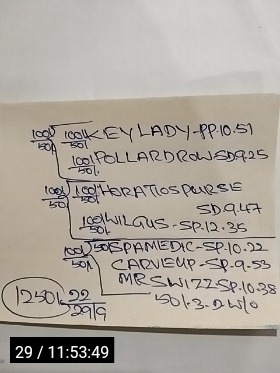 100/ 100/ KEYLADY-PP.10.51
50/
100/ POLLARDROW SD9.25
50/.
100/ 100/ HORATIOS PURSE
50/ 50/ SD.9.47
100/ WILGUS-SP.12.35
50/.
100/ 50/ SPAMEDIC-SP.10.22
50/ CARVIEUP-SP.9.53
MR SWIZZ-SP.10.38
50/.3.2.W/o
1250/. 22
29/9
29 / 11:53:49